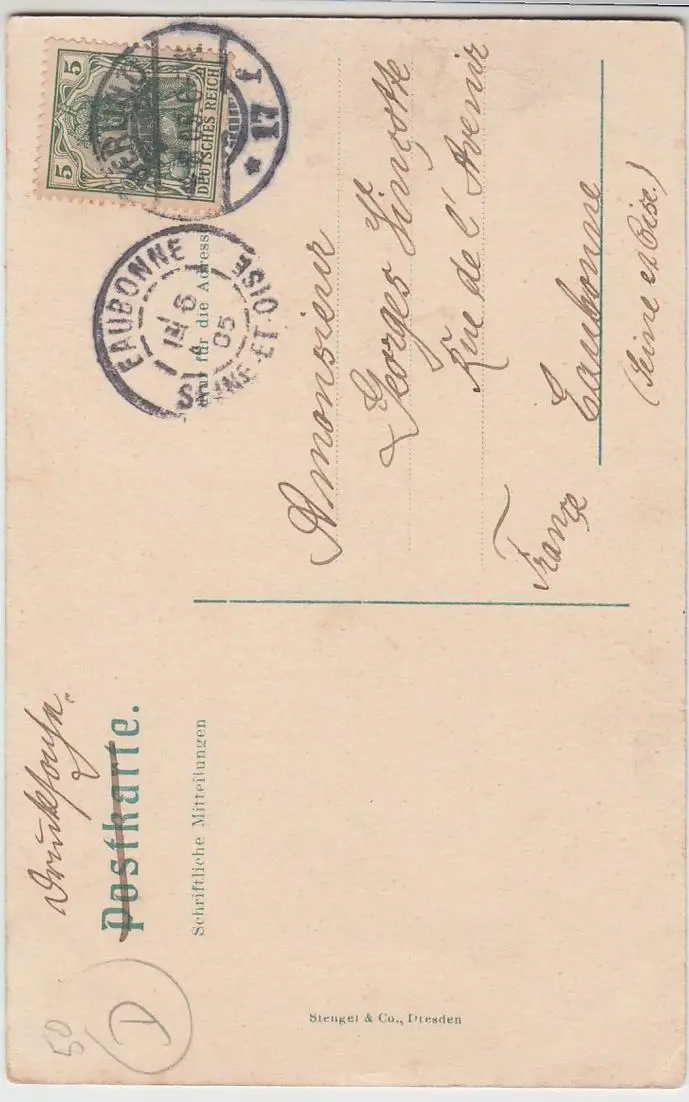 Drucksache.
Postkarte.
Schriftliche Mitteilungen
Nur für die Adresse
5
5
DEUTSCHES REICH
BERLIN
* 17 f
EAUBONNE
6
4
05
SEINE-ET-OISE
Amonsieur
Georges
Rue de l'Avenir
Eaubonne
France
(Seine et Oise.)
Stengel & Co., Dresden
D
50